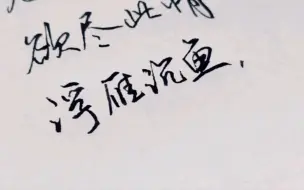 欲尽此情
浮雁沉鱼.